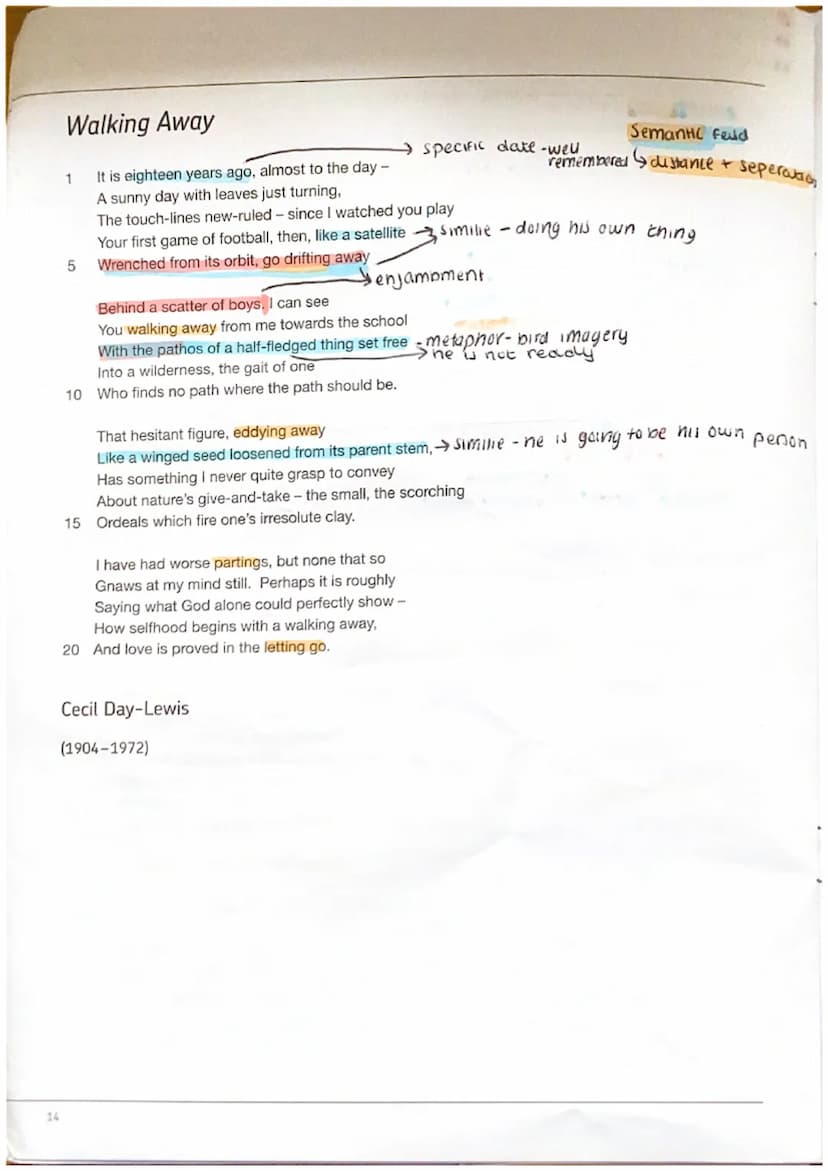 Walking Away
semantic feild
→ specific date - well
remembered
↳ distance + seperation
1 It is eighteen years ago, almost to the day –
A sunny day with leaves just turning,
The touch-lines new-ruled – since I watched you play
Your first game of football, then, like a satellite → similie - doing his own thing
5 Wrenched from its orbit, go drifting away
→ enjambment
Behind a scatter of boys. I can see
You walking away from me towards the school
With the pathos of a half-fledged thing set free - metaphor - bird imagery
→ he is not ready
Into a wilderness, the gait of one
10 Who finds no path where the path should be.
That hesitant figure, eddying away
Like a winged seed loosened from its parent stem, → similie - he is going to be his own person
Has something I never quite grasp to convey
About nature's give-and-take – the small, the scorching
15 Ordeals which fire one's irresolute clay.
I have had worse partings, but none that so
Gnaws at my mind still. Perhaps it is roughly
Saying what God alone could perfectly show –
How selfhood begins with a walking away,
20 And love is proved in the letting go.
Cecil Day-Lewis
(1904–1972)
14